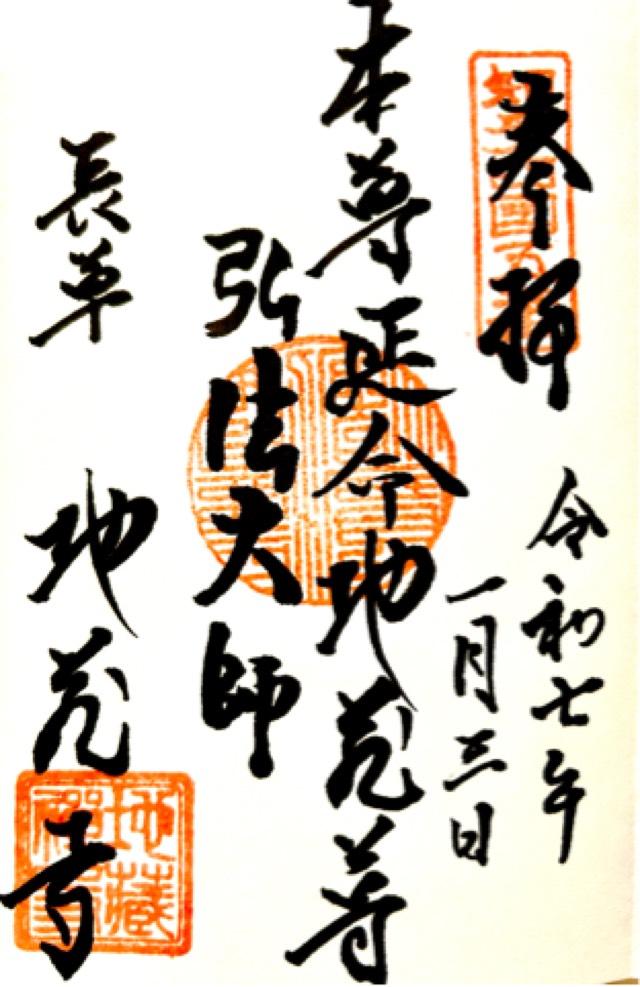 奉拝
令和七年
一月三日
本尊延命地蔵尊
弘法大師
長草 地蔵寺